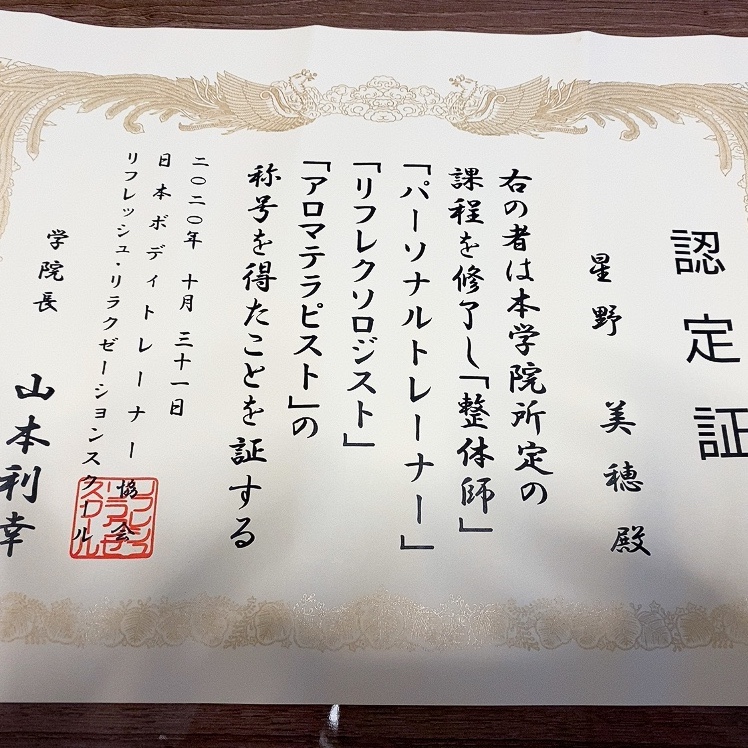 認定証
星野 美穂 殿
右の者は本学院所定の
課程を修了し「整体師」
「パーソナルトレーナー」
「リフレクソロジスト」
「アロマテラピスト」の
称号を得たことを証する
二〇二〇年 十月 三十一日
日本ボディトレーナー協会
リフレッシュ・リラクゼーションスクール
学院長 山本利幸